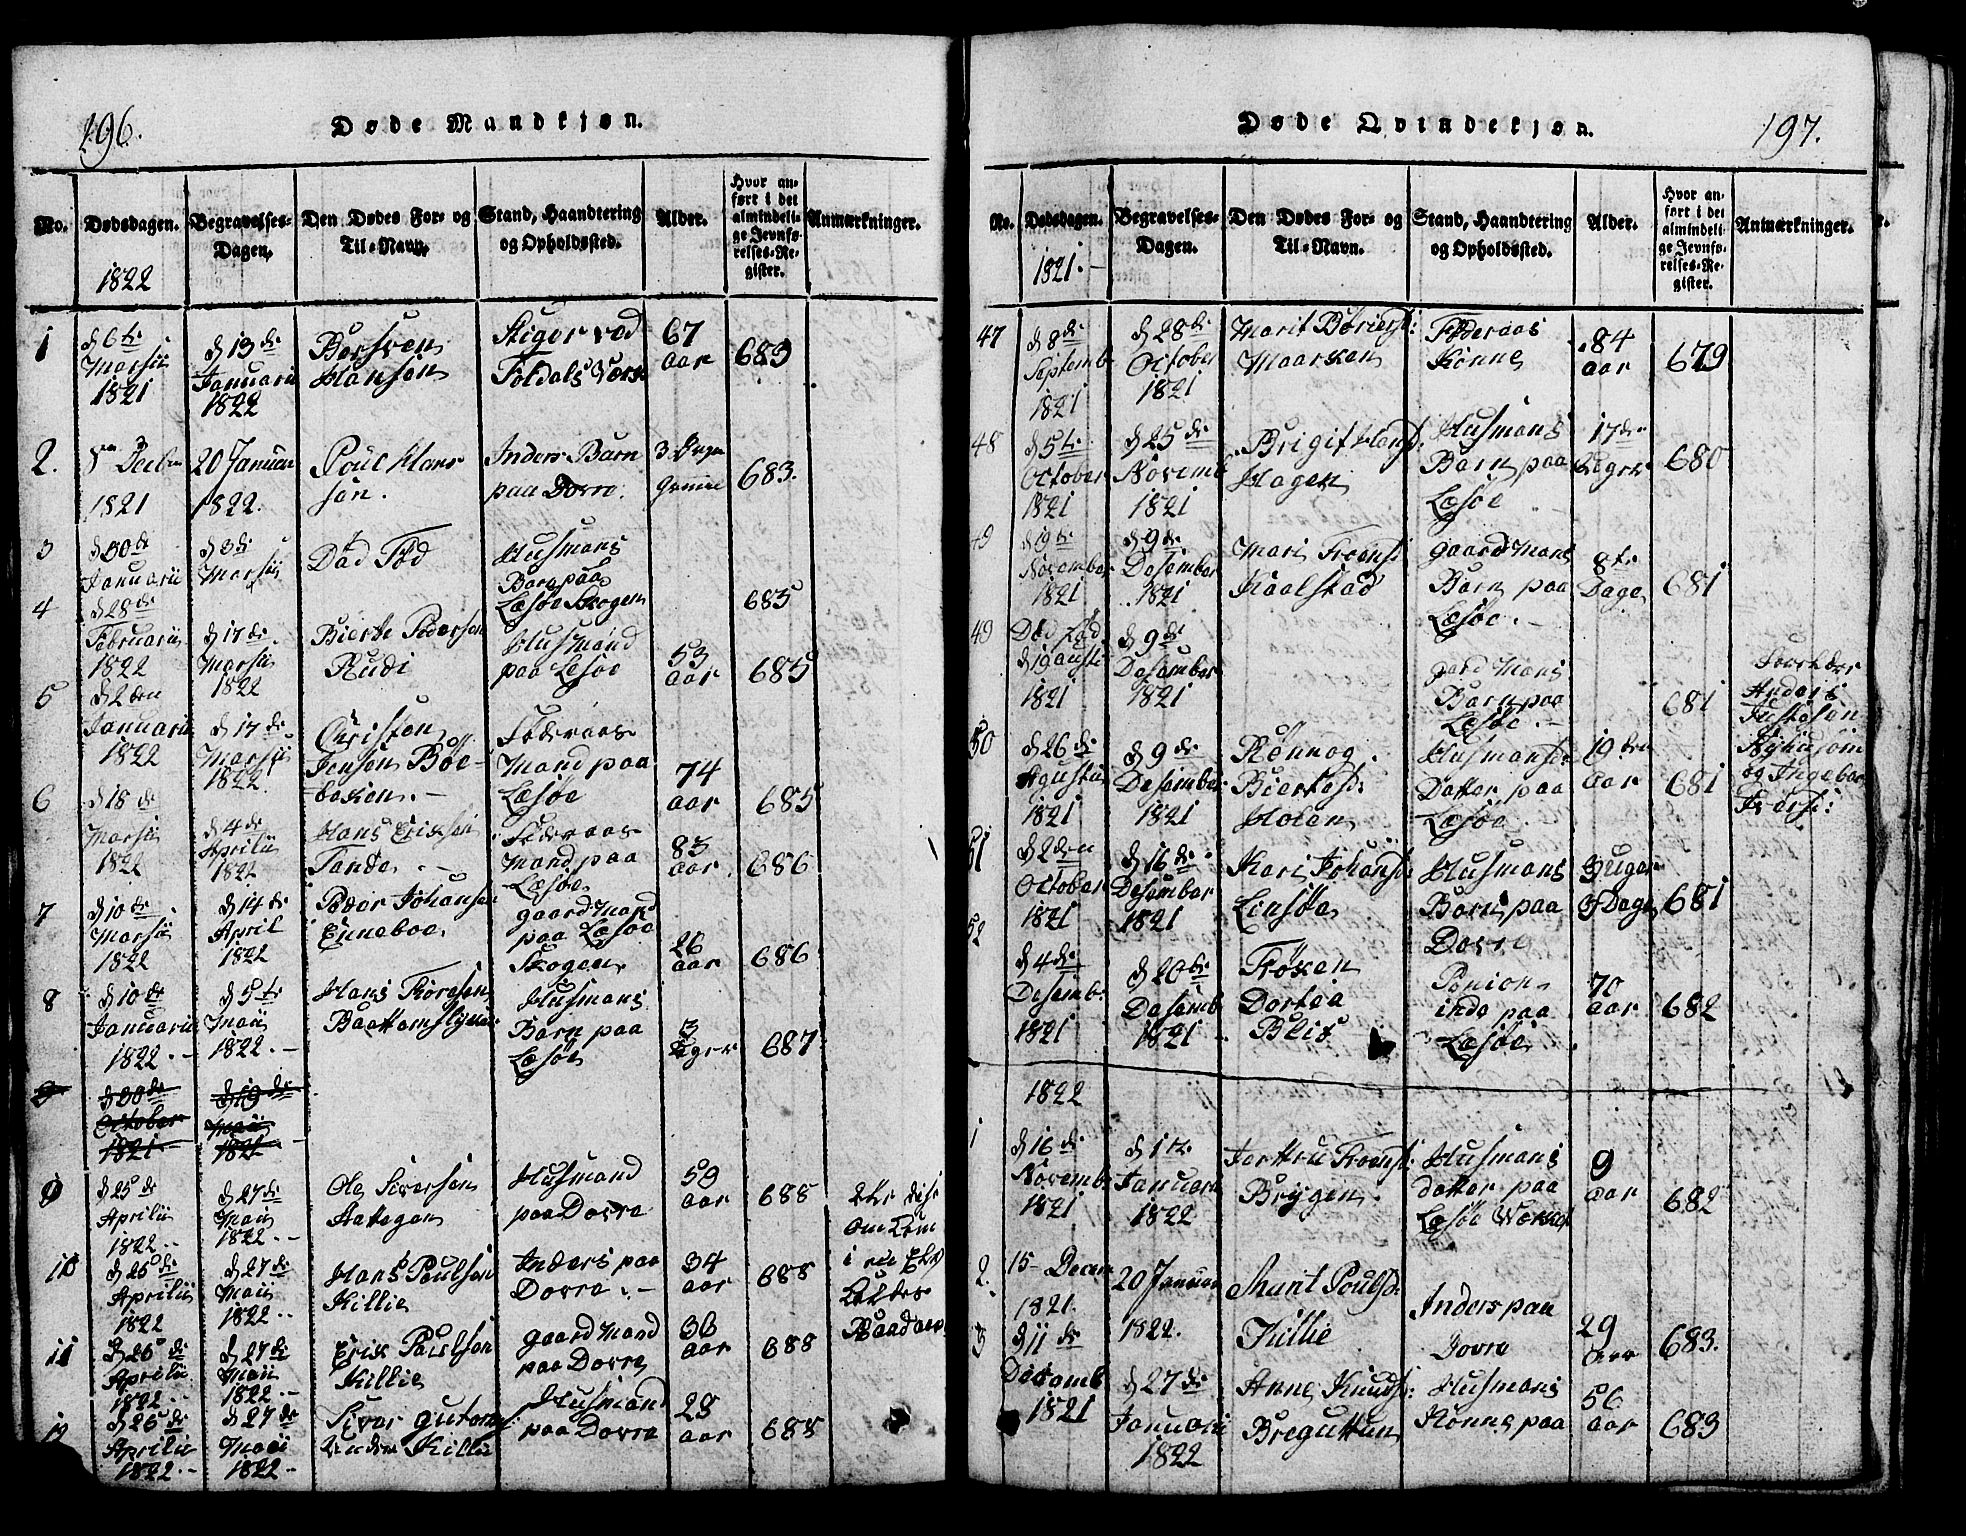 196.
Døde Mandkjøn.
No.
Dødsdagen.
1822
Begravelses-
Dagen.
Den Dødes For- og
Til-Navn.
Stand, Haandtering
og Opholdssted.
Alder.
Hvor an-
ført i det
almindeli-
ge Jevnfø-
relses-Re-
gister.
Anmærkninger.
1
d 6te
Marsii
1821
d 13de
Januarii
1822
Bersven
Hansen
Stiger ved
Foldals Værk
67
aar
683
2.
1821
20 Januar
1822.
Poul Hans
søn.
Inders Barn
paa Dovre.
3
683.
3
d 30de
Januarii
d 3de
Marsii
Død Fød
Husmans
Barn paa
Læsøe Skogen
685
4
d 28de
Februarii
1822
d 17de
Marsii
1822
Bierte Pedersen
Rudi
Husmand
paa Læsøe
53
aar
685
5
d 2den
Januarii
1822
d 17de
Marsii
1822
Christen
Jensen Böe-
Föderaas
Mand paa
Læsøe
74
aar
685
6
d 18de
Marsii
1822
d 4de
Aprilii
1822
Hans Eriksen
Tande
Föderaas
Mand paa
Læsøe
83
aar
686
7
d 10de
Marsii
1822
d 14de
April
1822
Peder Johansen
Enneboe
gaard Mand
paa Læsøe
Skogen
26
aar
686
8
d 10de
Januarii
1822
d 5te
Maii
1822
Hans Toresen
Husmans
Barn paa
Læsøe
3
Uger
687
d 30de
October
1821
d 19de
Maii
1821
9
d 25de
Aprilii
1822
d 27de
Maii
1822
Ole Siversen
Husmand
paa Dovre
59
aar
688
10
d 26de
Aprilii
1822
d 27de
Maii
1822
Hans Paulsen
Killie
Inders paa
Dovre
34
aar
688
11
d 26de
Aprilii
1822
d 27de
Maii
1822
Erik Paulsen
Killie
gaard Mand
paa Dovre
36
aar
688
12
d 26de
Aprilii
1822
d 27de
Maii
1822
Siver
Killie
Husmand
paa Dovre
28
aar
688
197.
Døde Qvindekjøn.
No.
Dødsdagen.
1821
Begravelses-
Dagen.
Den Dødes For- og
Til-Navn.
Stand, Haandtering
og Opholdssted.
Alder.
Hvor an-
ført i det
almindeli-
ge Jevnfø-
relses-Re-
gister.
Anmærkninger.
47
d 8de
Septemb
1821
d 28de
October
1821
Marit
Föderaas
Konne
84
aar
679
48
d 5te
October
1821
d 25de
Novemb
1821
Brigit Hansd:
Hagen
Husmans
Barn paa
Læsøe
17de
Uger
680
49
d 19de
November
1821
d 9de
Desember
1821
Mari
Kaalstad
gaard Mans
Barn paa
Læsøe
8te
Dage
681
49
Død Fød
1821
d 9de
Desember
1821
gaard Mans
Barn paa
Læsøe
681
Anders
og Ingebor
50
d 26de
Agustii
1821
d 9de
Desember
1821
Rönnog
Biertesd:
Holen
Husmans
Datter paa
Læsøe
19
aar
681
51
d 2den
October
1821
d 16de
Desember
1821
Kari Johansd:
Linsøe
Husmans
Barn paa
Dovre
3 Uger
3 Dage
681
52
d 4de
Desemb.
1821
d 20de
Desemb
1821
Fröken
Dortea
Blix
inde paa
Læsøe
70
aar
682
1822
1
d 16de
Novemb
1821
d 1te
Januarii
1822
Brygen
Husmans
datter paa
Læsøe Værket
9
aar
682
2.
15 Decem
1821.
20 Januar
1822.
Marit Poulsd
Killie
Inders paa
Dovre
29
683.
3
d 11de
Desemb
1821
d 27de
Januarii
1822
Anne Knudsd:
Breguttun
Husmans
Konne paa
56
aar
683